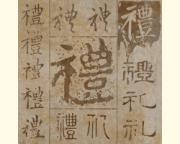 禮 禮 禮 禮
禮 禮 禮
禮 禮 礼
禮 禮 礼 禮 礼